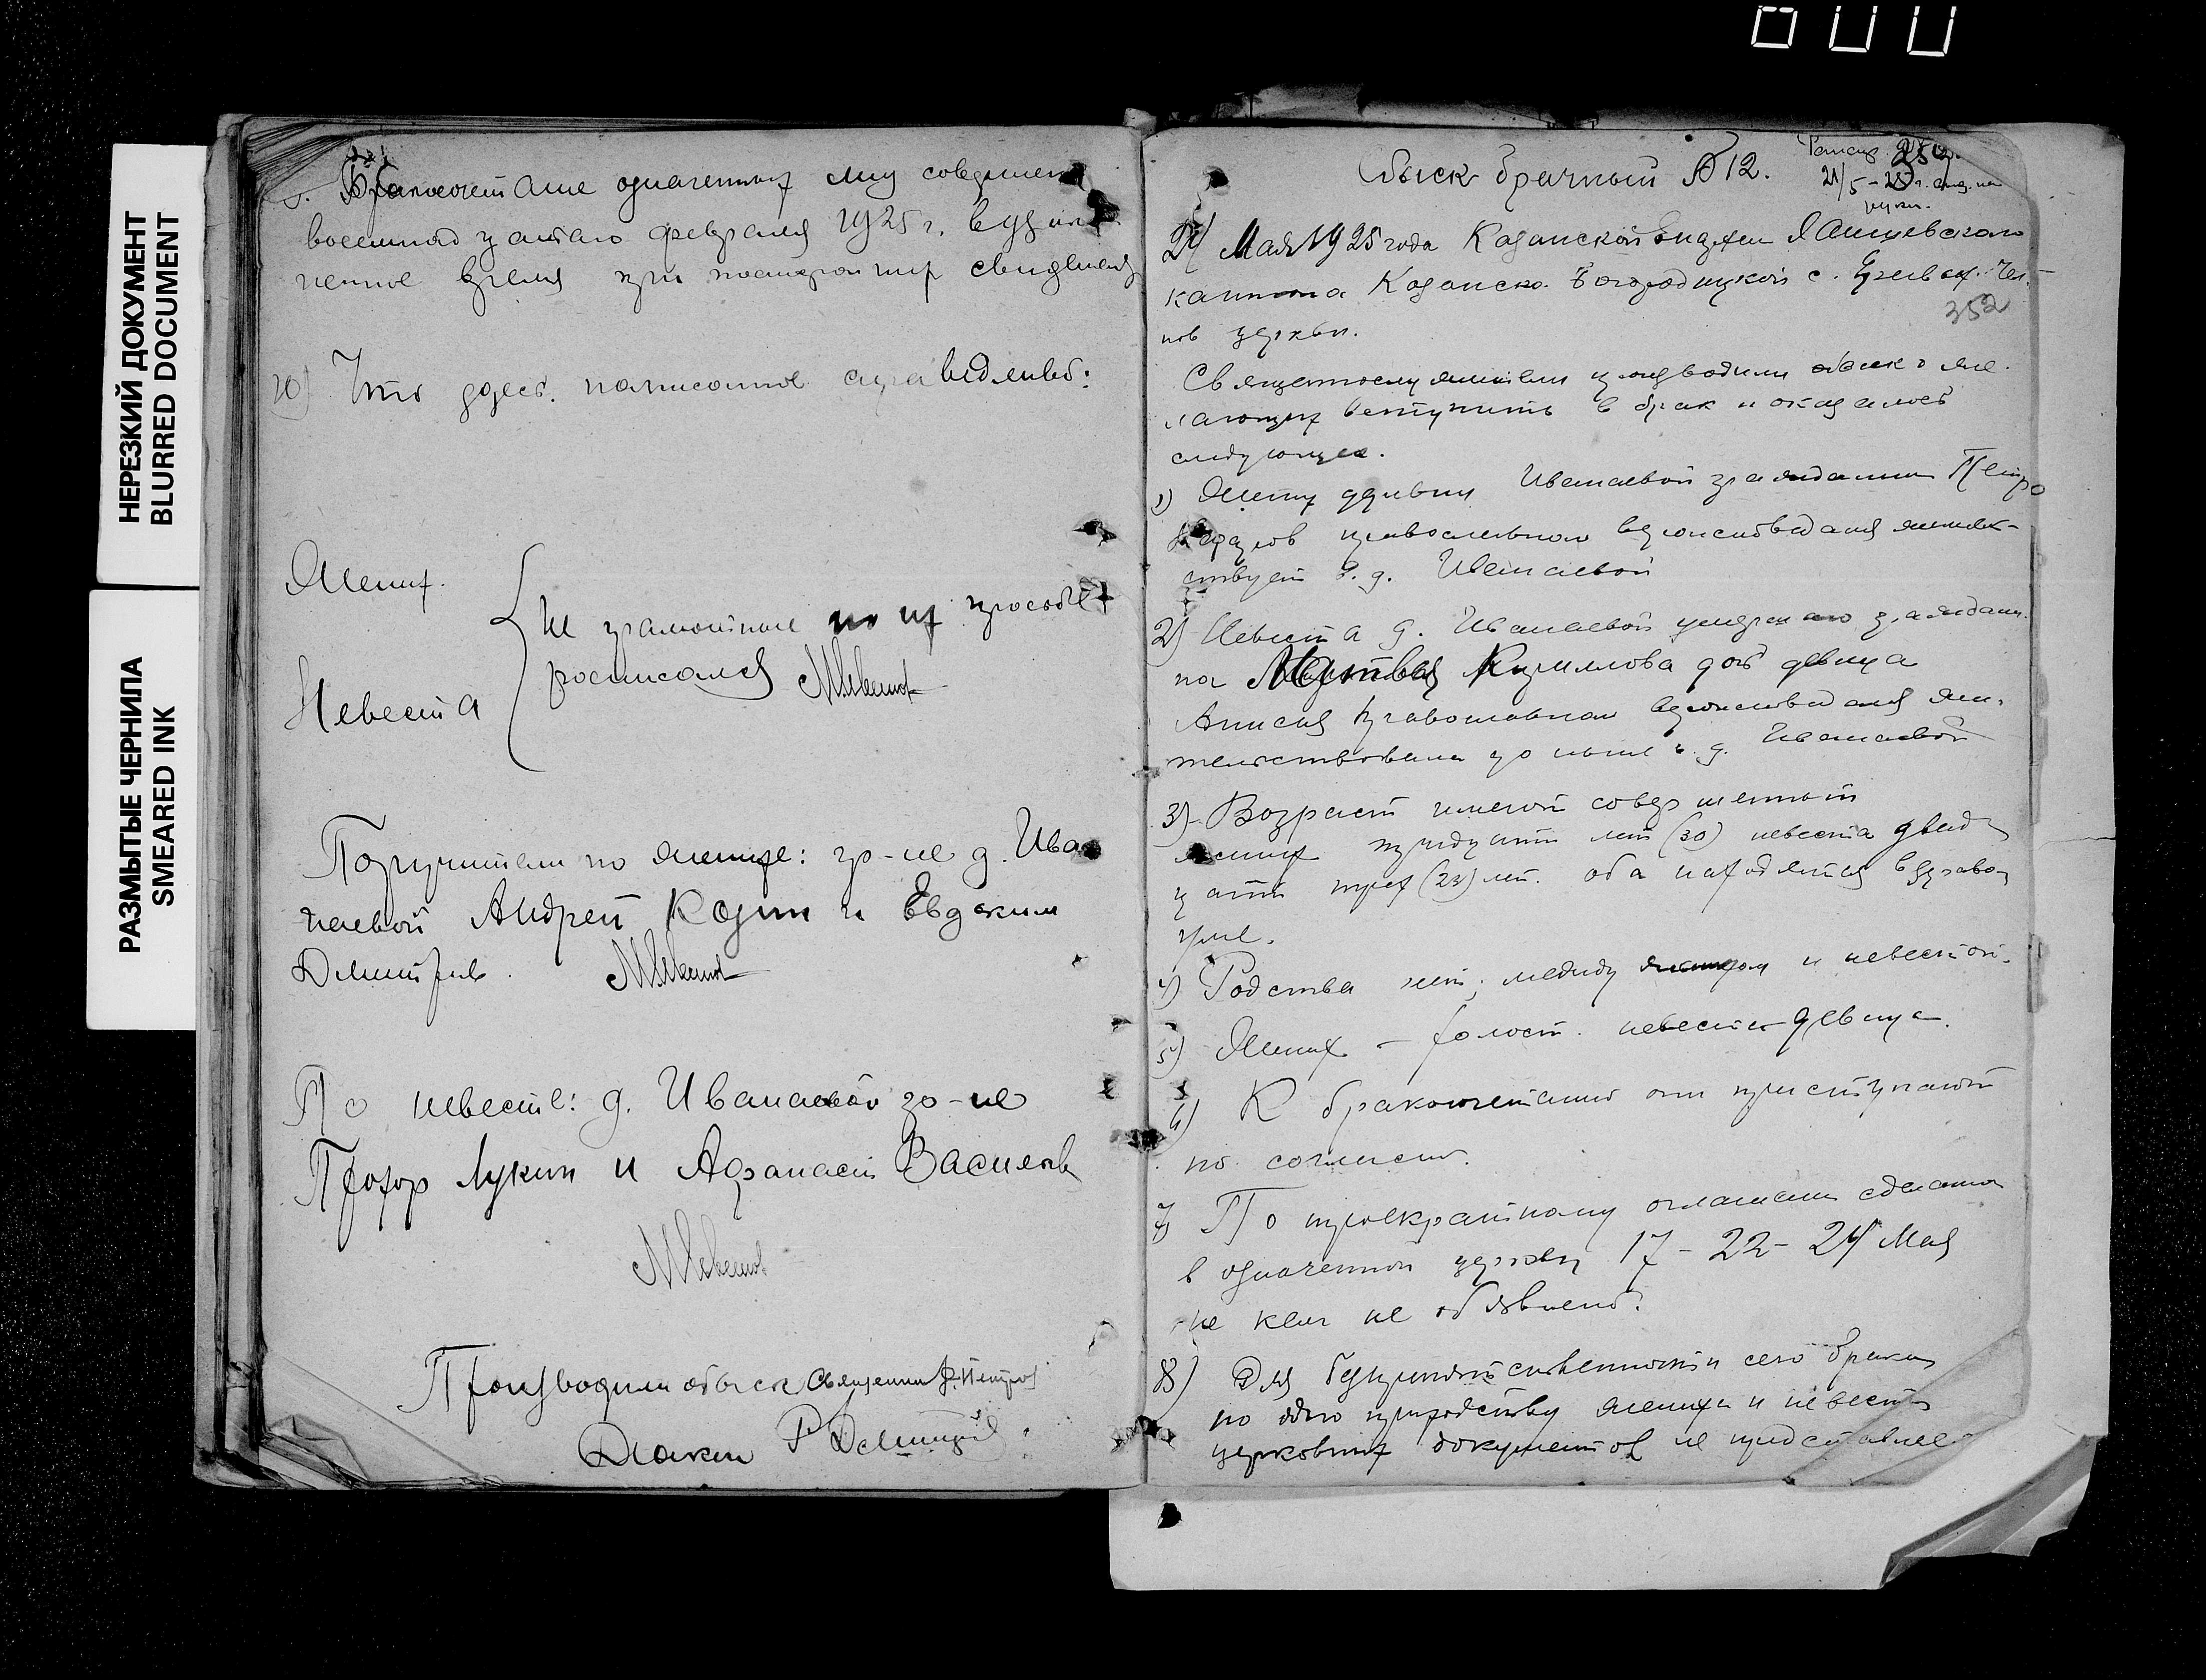 НЕРЕЗКИЙ ДОКУМЕНТ
BLURRED DOCUMENT
РАЗМЫТЫЕ ЧЕРНИЛА
SMEARED INK
Бракосочетание означенных лиц совершено
восемнадцатаго февраля 1925 г. в узако-
ненное время при посторонних свидетелях
10) Что здесь написанное справедливо:
Жених
Невеста
Не грамотные по их просьбе
росписался
Поручители по женихе: гр-не д. Ива
наевой Андрей Козин и Евдоким
Дмитриев.
По невесте: д. Иванаевой гр-не
Прохор Лукин и Афанасий Васильев
Производили обыск Священник Петров
Диакон
Обыск брачный № 12.
21/5-25 г.
24 Мая 1925 года Казанской Епархии Лаишевского
кантона Казанско-Богородицкой с.
нов церкви.
352
Священнослужители производили обыск о же-
лающих вступить в брак и оказалось
следующее.
1) Жених деревни Иванаевой гражданин Петр
православного вероисповедания житель-
ствует в д. Иванаевой
2) Невеста д. Иванаевой умершаго граждани-
на Матвея Кириллова дочь девица
Анисия православного вероисповедания жи-
тельствовала до ныне в д. Иванаевой
3) Возраст имеют совершенный
жених тридцати лет (30) невеста двад
цати трех (23) лет. оба находятся в здравом
уме.
4) Родства нет между женихом и невестой.
5) Жених - холост. невеста девица.
6) К бракосочетанию они приступают
по согласию.
7) По троекратному оглашению сделанном
в означенной церкви 17 - 22 - 24 Мая
не кем не объявлено.
8) Для безпрепятственности сего брака
церковных документов не представлено